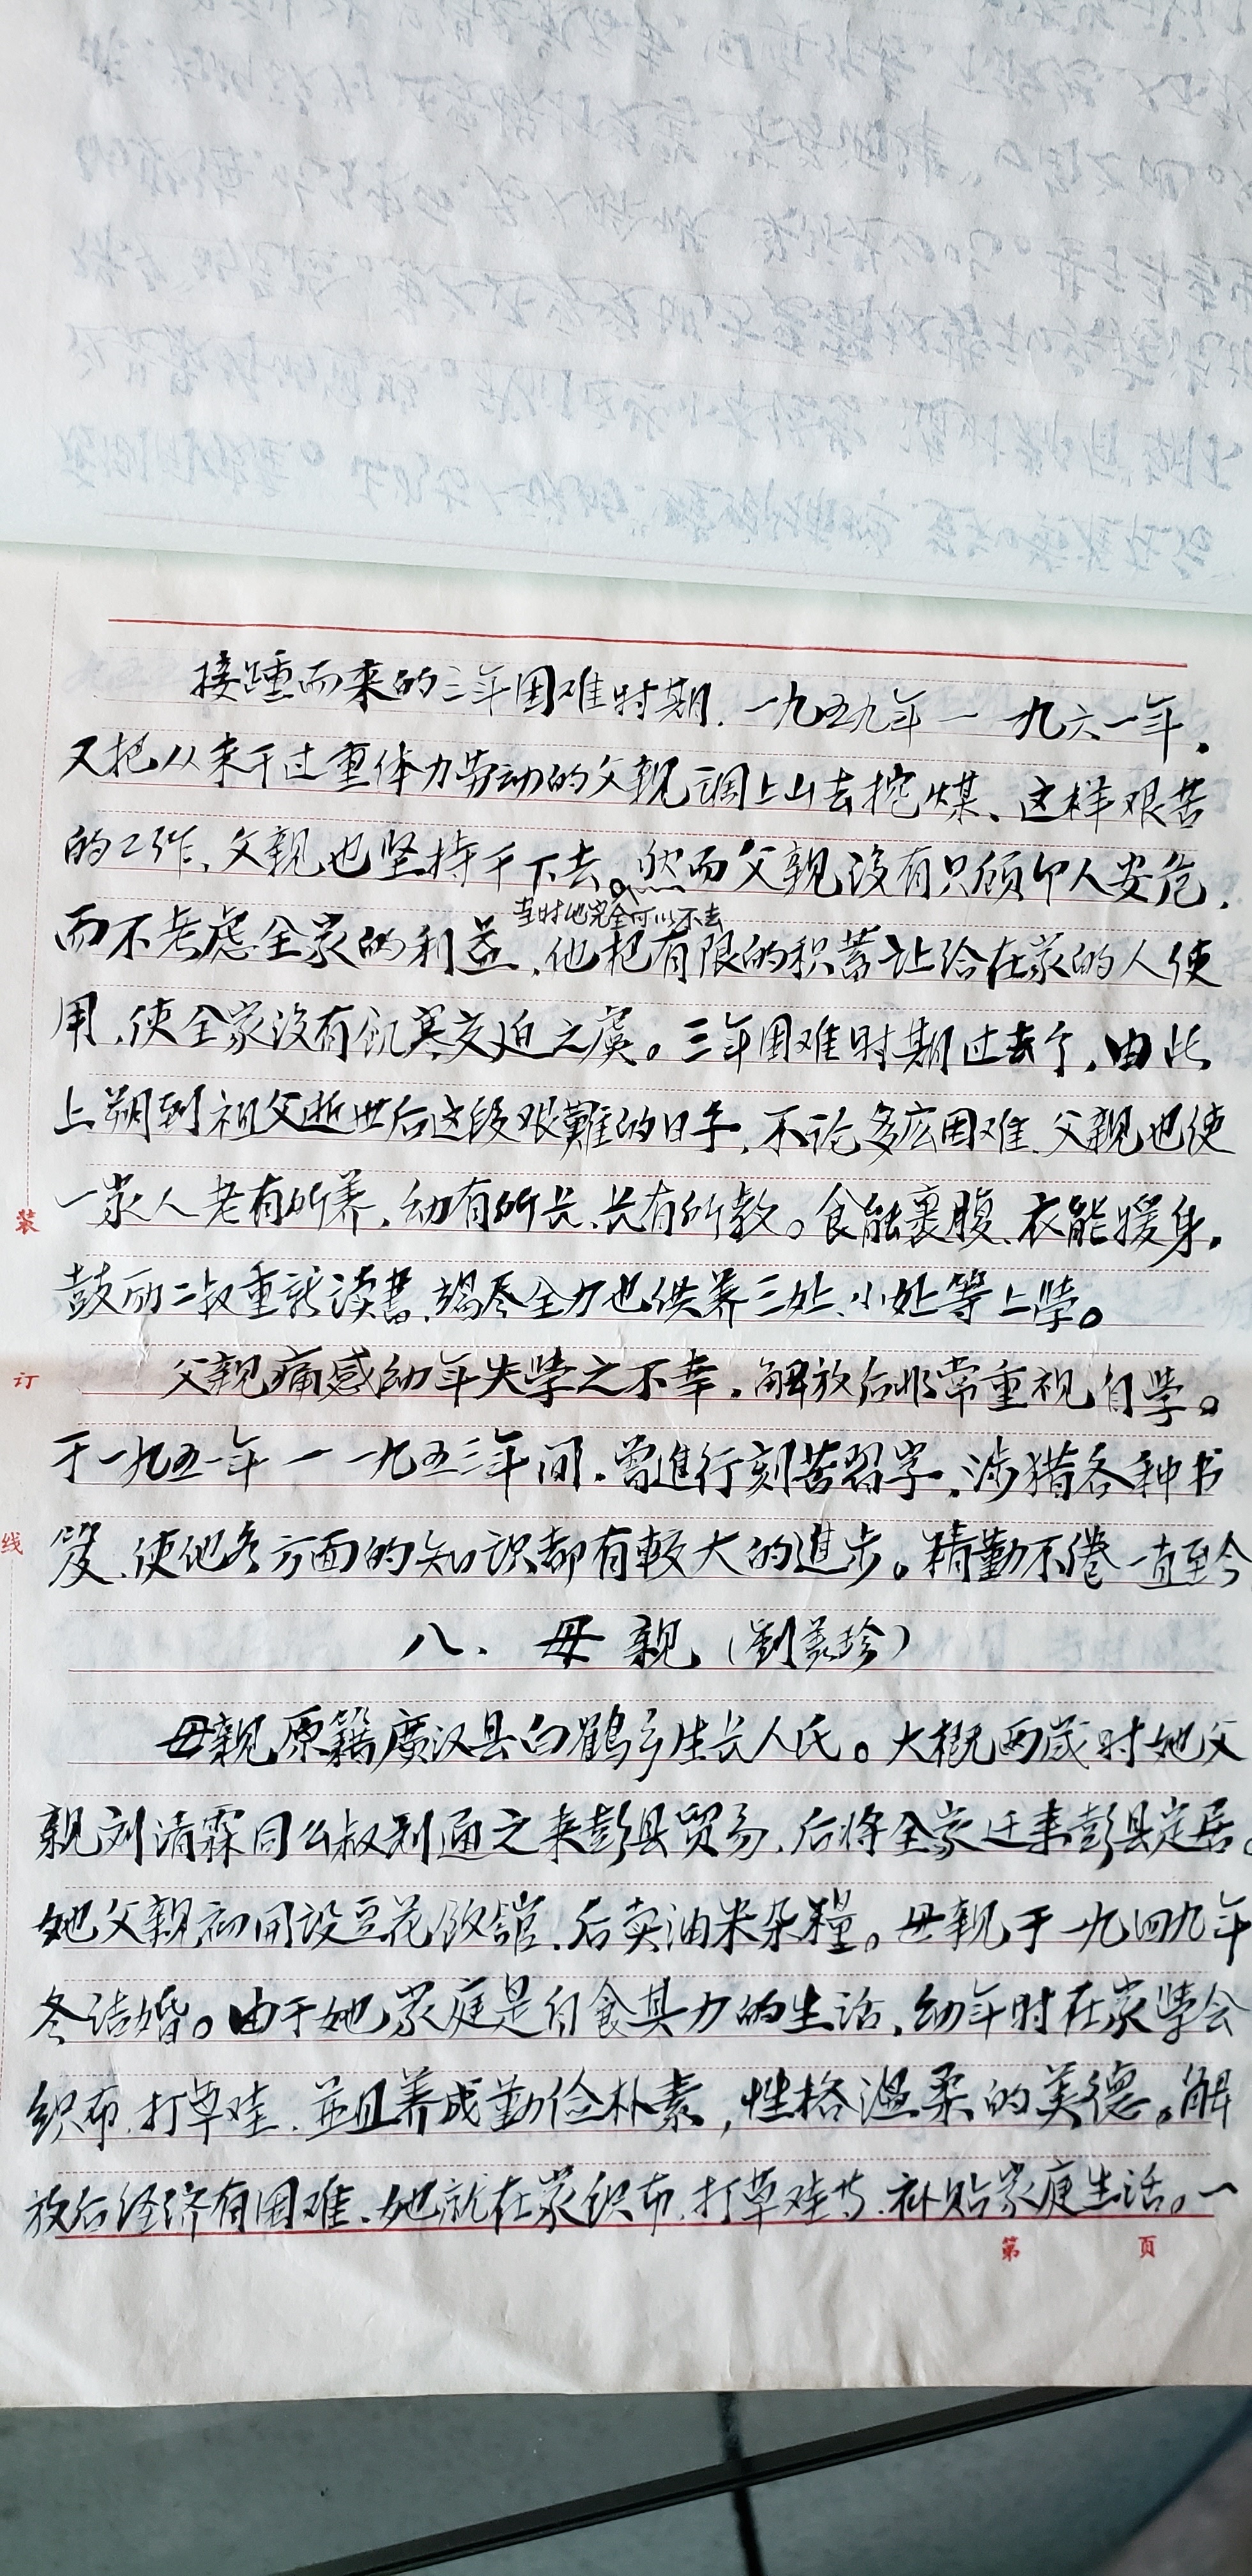 接踵而来的三年困难时期，一九五九年一一九六一年，
又把从未干过重体力劳动的父亲调上山去挖煤、这样艰苦
的工作、父亲也坚持干下去。然而父亲没有只顾个人安危，
当时他完全可以不去
而不考虑全家的利益，他把有限的积蓄让给在家的人使
用，使全家没有饥寒交迫之虞。三年困难时期过去了，由此
上朔到祖父逝世后这段艰難的日子，不论多么困难、父亲也使
一家人老有所养，幼有所长、长有所教。食能裹腹、衣能暖身，
鼓励二叔重新读書、竭尽全力也供养三处、小处等上學。
父亲痛感幼年失學之不幸，解放后非常重视自学。
于一九五一年一一九五三年间，曾進行刻苦習字，涉猎各种书
笈、使他多方面的知识都有較大的進步。精勤不倦一直至今
八、母亲（劉美珍）
母亲原籍廣汉县白鶴乡生长人氏。大概两歲时她父
亲刘清霖同么叔刘通之来彭县贸易，后将全家迁来彭县定居。
她父亲初開设豆花飯舘、后卖油米杂糧。母亲于一九四九年
冬结婚。由于她家庭是自食其力的生活，幼年时在家學会
织布、打草鞋、並且养成勤俭朴素，性格温柔的美德。解
放后经济有困难、她就在家织布、打草鞋等、补贴家庭生活。一
装
订
线
第 頁